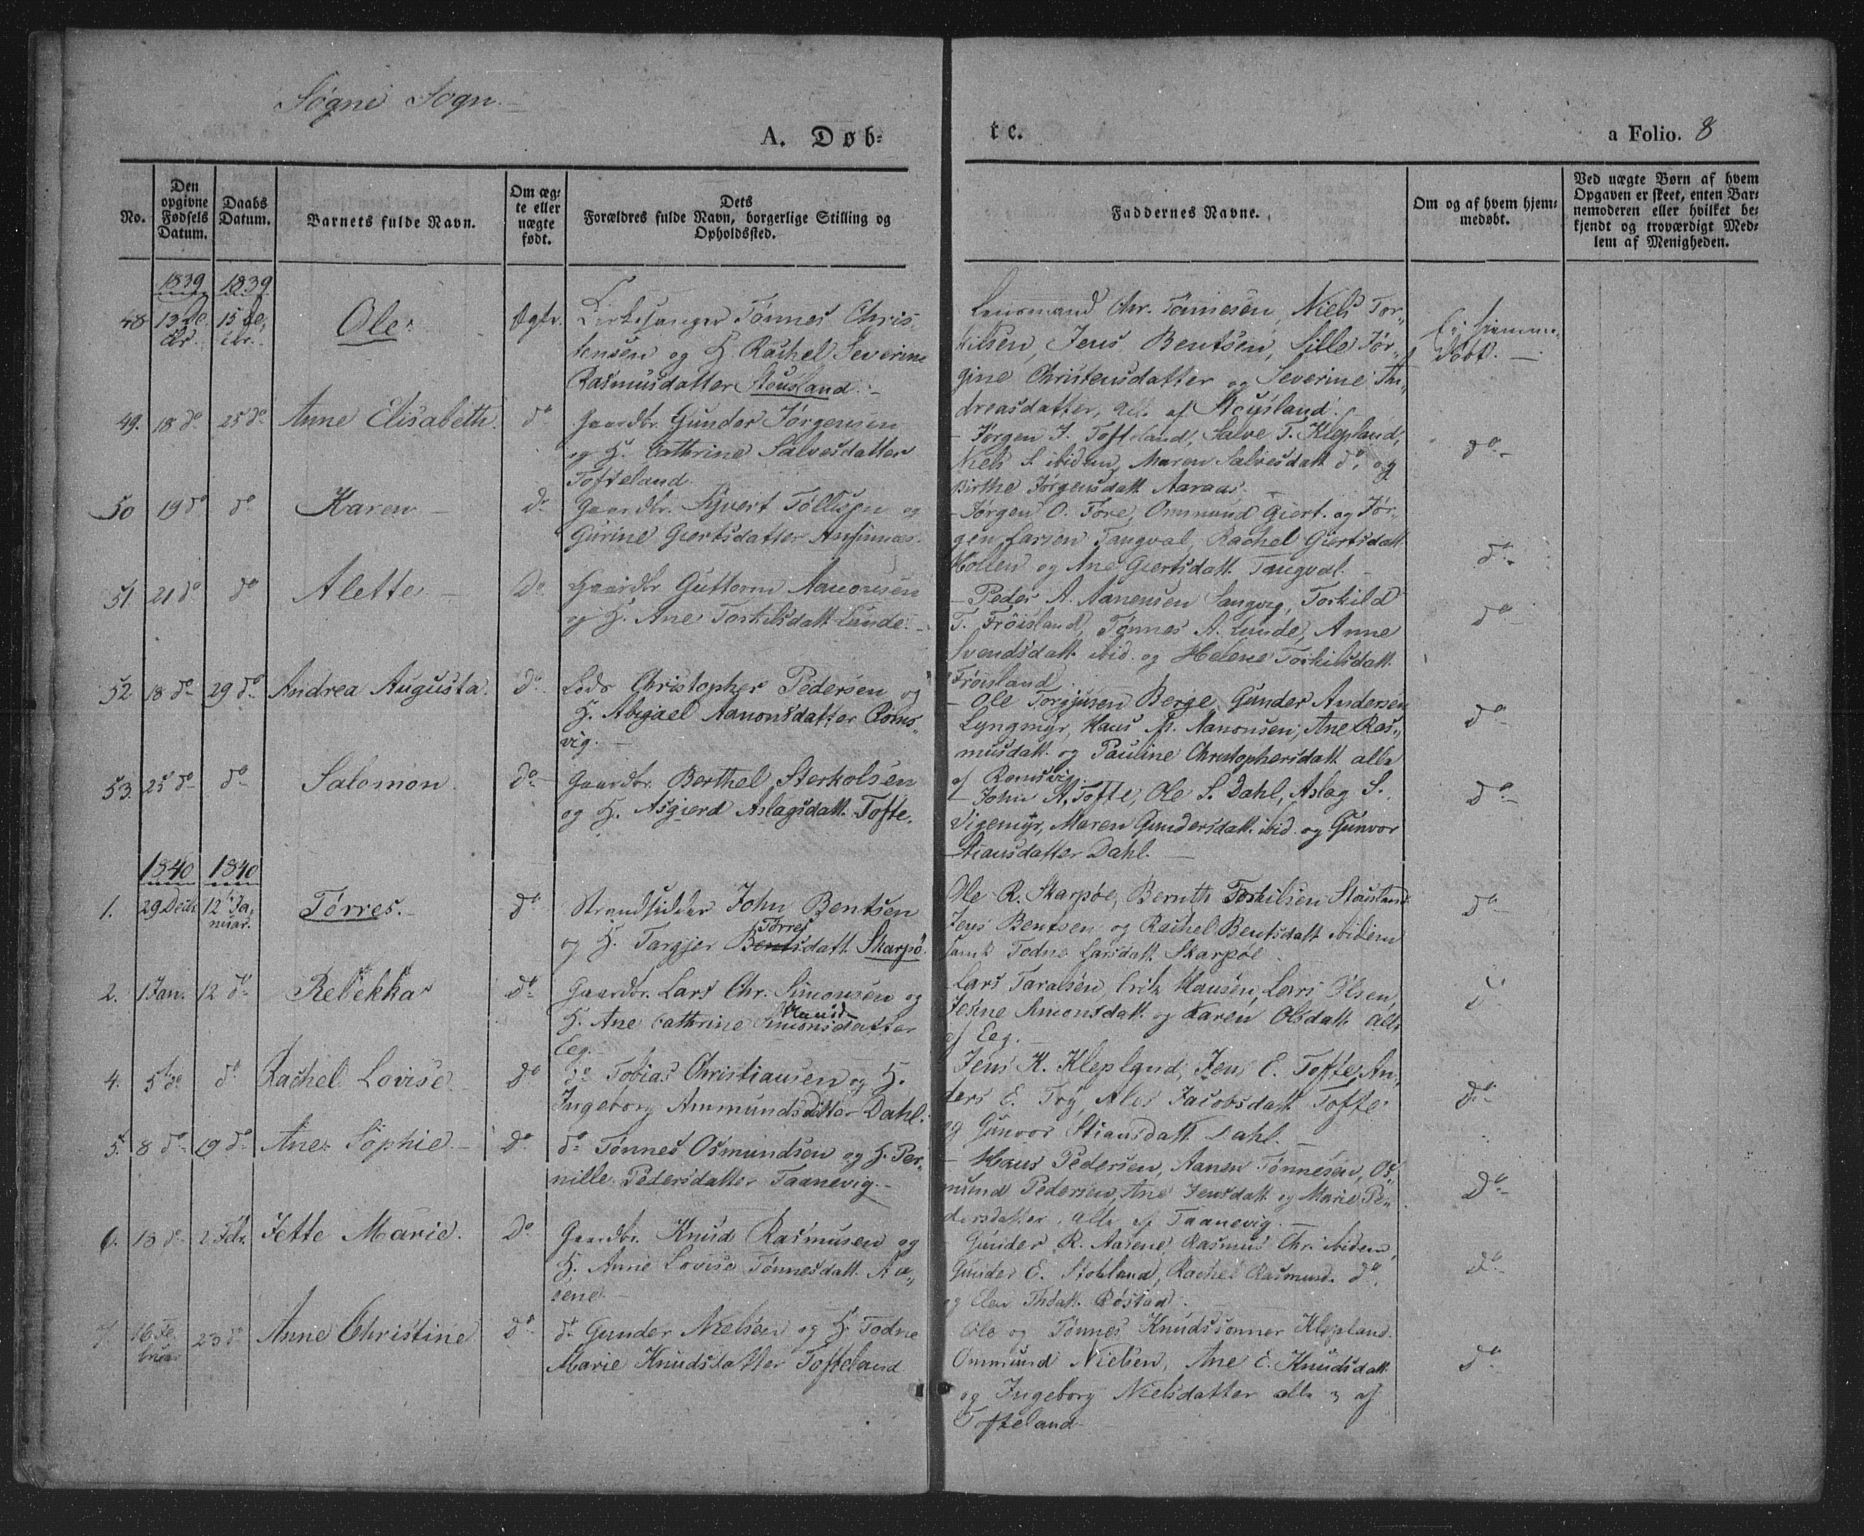 Søgne Sogn.
A. Døb-
te.
a Folio. 8
No.
Den opgivne Fødsels Datum.
Daabs Datum.
Barnets fulde Navn.
Om ægte eller nægte født.
Dets Forældres fulde Navn, borgerlige Stilling og Opholdssted.
Faddernes Navne.
Om og af hvem hjemmedøbt.
Ved nægte Børn af hvem Opgaven er skeet, enten Barnemoderen eller hvilket bekjendt og troværdigt Medlem af Menigheden.
1839 1839
48. 13 De 15 De, Ole. Ægte. Kirkesanger Tønnes Chris-
cbr. cbr. tensen og H. Rachel Severine
Rasmusdatter Stousland.
Lensmand Chr. Tønnesen, Niels Tor-
kilsen, Jens Bentsen, Sille Jør-
gine Christensdatter og Severine An-
dreasdatter, alle af Stousland.
Ej hjemme-
døbt.
49. 18 do 25 do Anne Elisabeth. do Gaardbr. Gunder Jørgensen
og H. Cathrine Salvesdatter
Tofteland.
Jørgen J. Tofteland, Salve T. Klepland,
Niels S. ibidem, Maren Salvesdatt. do, og
Birthe Jørgensdatt. Aaraas.
do
50 19 do do Karen do Gaardbr. Syvert Tollisen og
Gurine Giertsdatter
Jørgen O. Tore, Ommund Giert. og Jør-
gen Larsen Tangval, Rachel Giertsdatt.
Hollen og Ane Giertsdatt. Tangval.
do
51. 21 do do Alette do Gaardbr. Guttorm Aanonsen
og H. Ane Torkilsdatt. Lunde.
Peder A. Aanensen Langvig, Torkild
T. Frøisland, Tønnes A. Lunde, Anne
Svendsdatt. ibid. og Helene Torkilsdatt.
Frøisland.
do
52. 18 do 29 do Andrea Augusta. do Lods Christopher Pedersen og
H. Abigael Aanonsdatter Roms-
vig.
Ole Torgjusen Berge, Gunder Andersen
Lyngmyr, Hans P. Aanonsen, Ane Ras-
musdatt. og Pauline Christophersdatt. alle
af Romsvig.
do
53. 25 do do Salomon. do Gaardbr. Berthel Sterkolsen
og H. Asgierd Aslagsdatt. Tofte.
John A. Tofte, Ole S. Dahl, Aslag S.
Vigemyr, Maren Gundersdatt. ibid. og Gunvor
Stiansdatter Dahl.
do
1840 1840
1. 29 Decbr. 12te Ja- Tørres. do Strandsidder John Bentsen
nuar. og H. Targjer Bentsdatt. Skarpø.
Tørres
Ole R. Skarpøe, Bernth Torkilsen Stousland
Jens Bentsen og Rachel Bentsdatt. ibidem
samt Todne Larsdatt. Skarpøe.
do
2. 1 Jan. 12 do Rebekka do Gaardbr. Lars Chr. Simonsen og
H. Ane Cathrine Simonsdatter
Hansd.
Eeg.
Lars Taralsen, Hansen, Lars Olsen,
Simonsdatt. og Karen Olsdatt. alle
af Eeg.
do
4. 5 do do Rachel Lovise do do Tobias Christiansen og H.
Ingeborg Ammundsdatter Dahl.
Jens K. Klepland, Jens E. Tofte, An-
ders E. Try, Ales Jacobsdatt. Tofte
og Gunvor Stiansdatt. Dahl.
do
5. 8 do 19 do Ane Sophie do do Tønnes Osmundsen og H. Per-
nille Pedersdatter Taanevig.
Hans Pedersen, Aanen Tønnesen, Os-
mund Pedersen, Ane Jensdatt. og Marie Pe-
dersdatter, alle af Taanevig.
do
6. 13 do 2 Febr. Jette Marie. do Gaardbr. Knud Rasmusen og
H. Anne Lovise Tønnesdatt. Aa-
sene.
Gunder R. Aasene, Rasmus Chr. ibidem,
Gunder E. Stokland, Rachel Rasmusd. do.
og Elen Thdatt. Røstad.
do
7. 16 Fe- 23 do Anne Christine do do Gunder Nielsen og H. Todne
bruar Marie Knudsdatter Tofteland
Ole og Tønnes Knudssønner Klepland.
Ommund Nielsen, Ane E. Knudsdatt.
og Ingeborg Nielsdatter alle 3 af
Tofteland
do